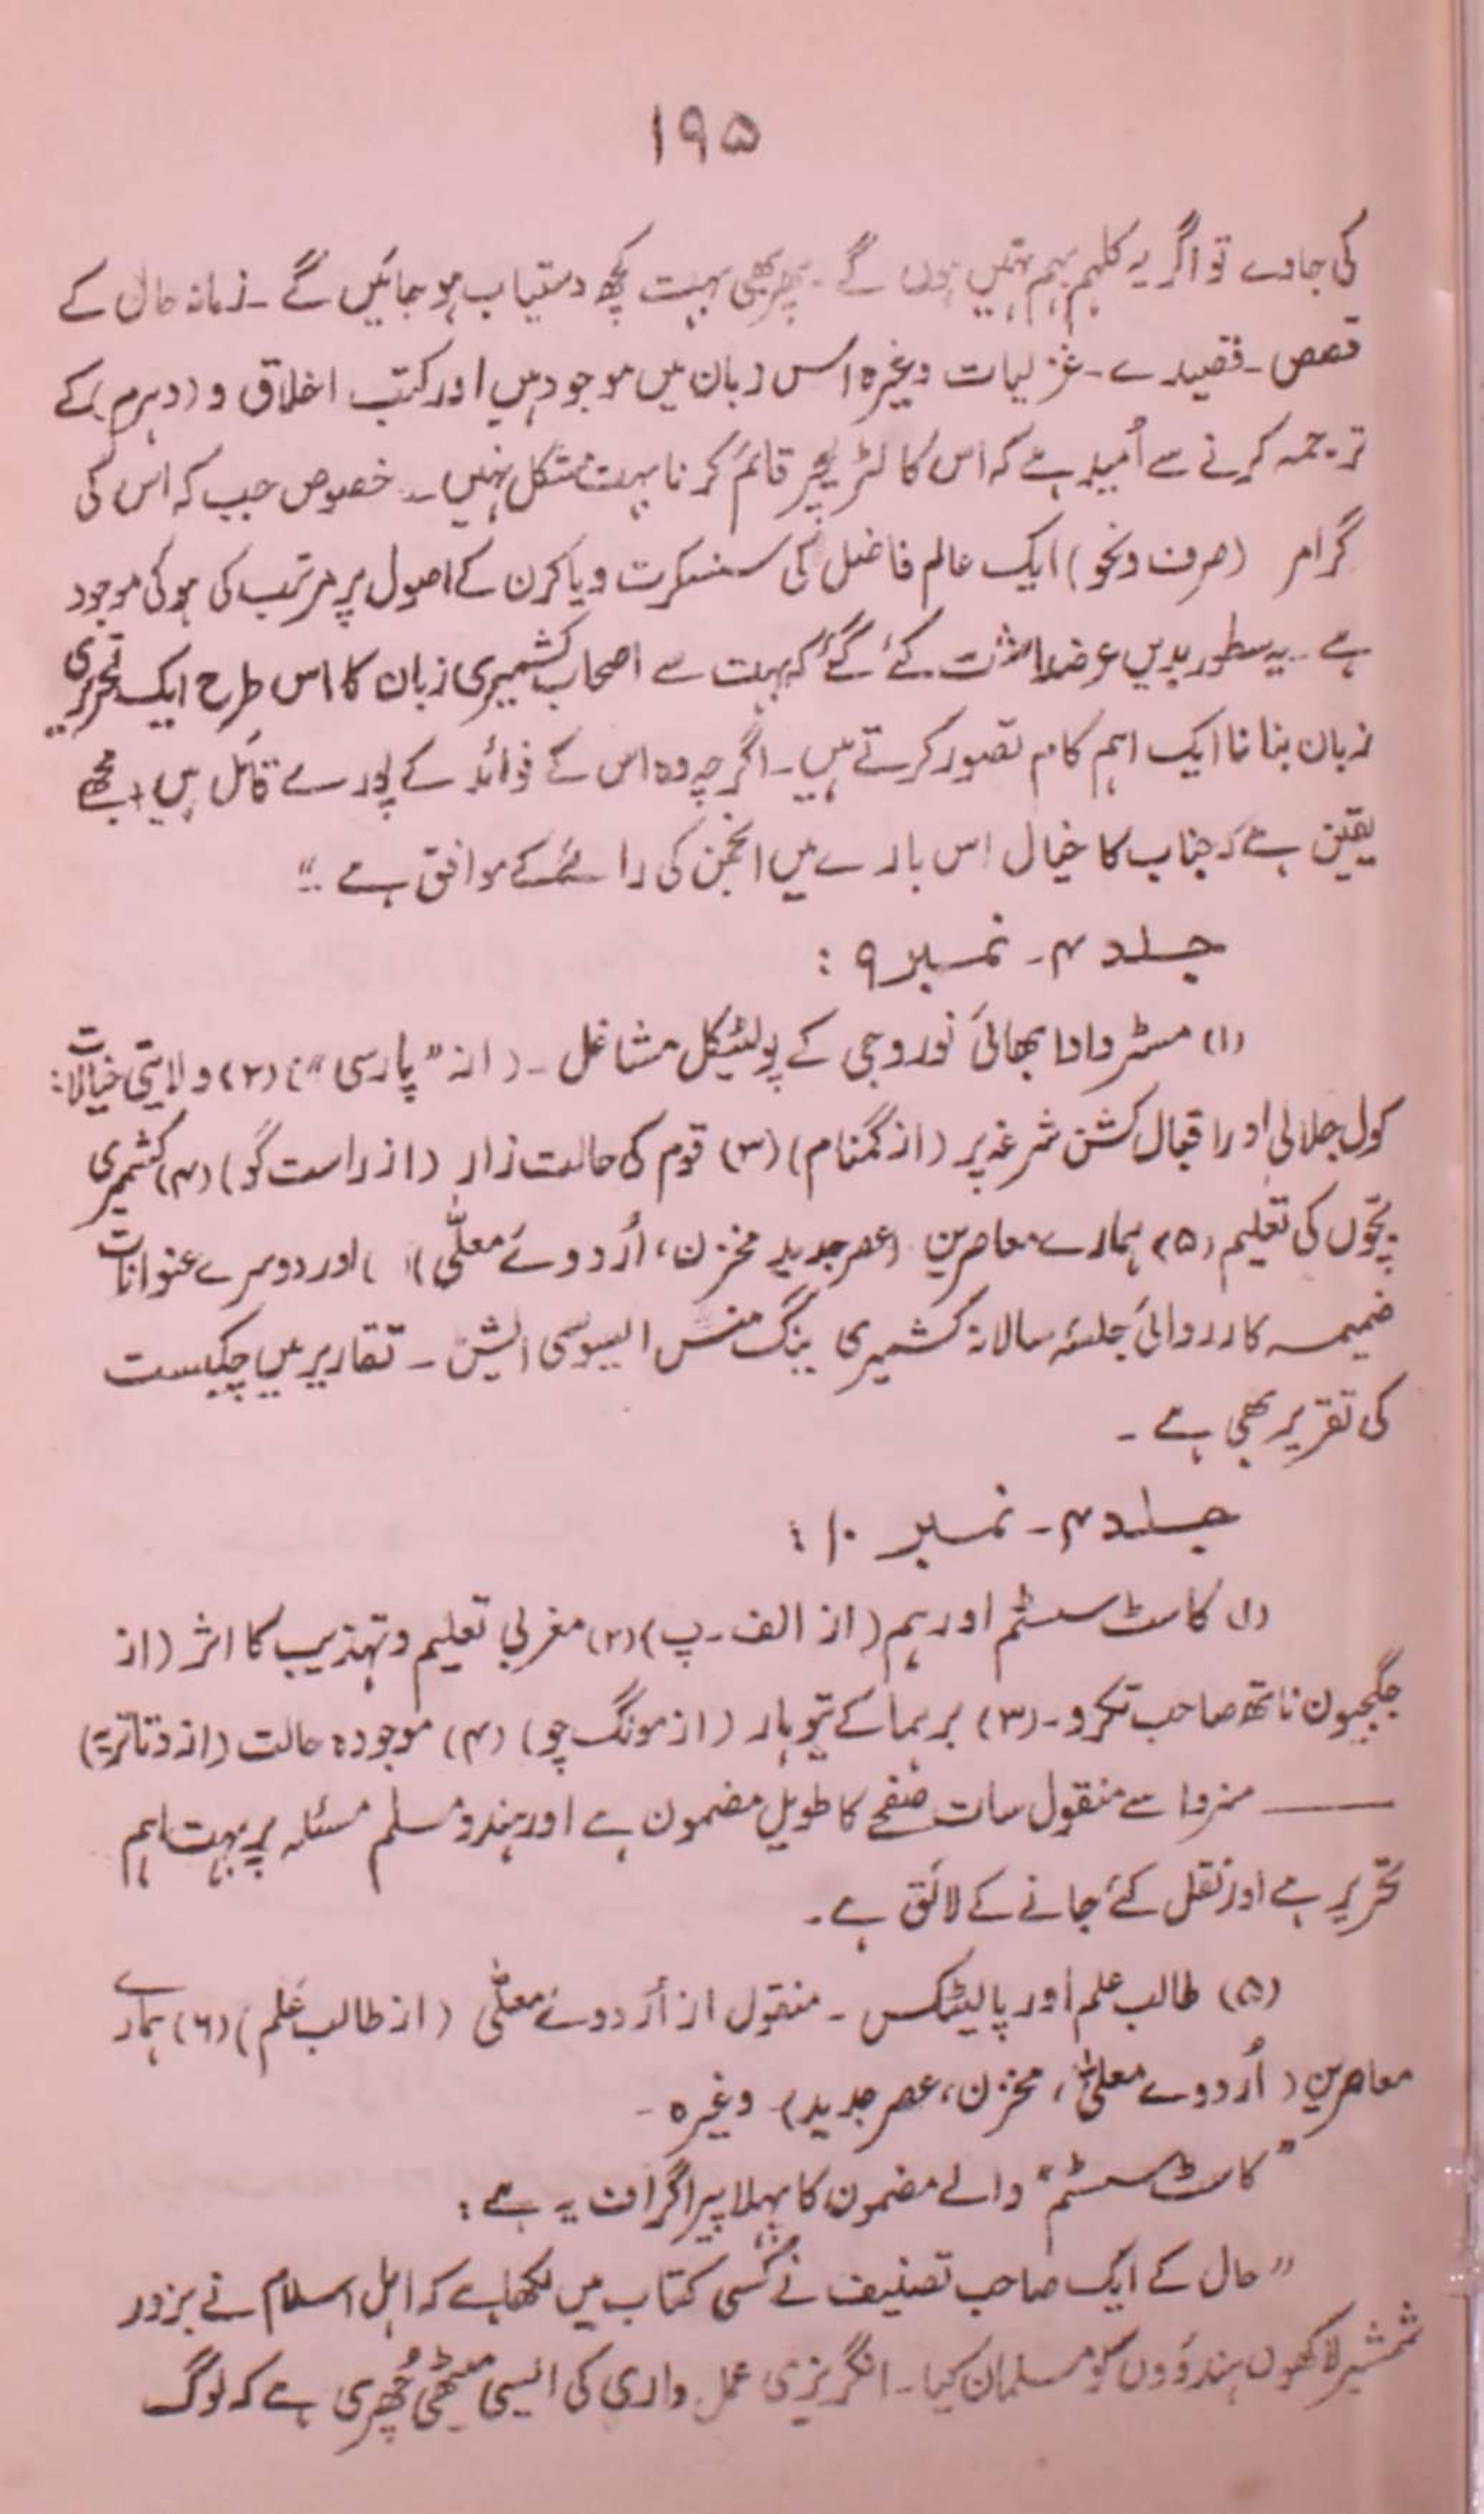 ۱۹۵
کی جاوے تو اگر یہ کلہم بہم نہیں ہوں گے ۔ پھر بھی بہت کچھ دستیاب ہو جائیں گے ۔ زمانہ حال کے
قصص ۔ قصیدے ۔ غزلیات وغیرہ اس زبان میں موجود ہیں اور کتب اخلاق و (دہرم) کے
ترجمہ کرنے سے اُمید ہے کہ اس کا لٹریچر قائم کرنا بہت مشکل نہیں ۔ خصوص جب کہ اس کی
گرامر (صرف و نحو) ایک عالم فاضل کی سنسکرت ویاکرن کے اصول پر مرتب کی ہوئی موجود
ہے ۔ یہ سطور بدیں غرض کئے گئے کہ بہت سے اصحاب کشمیری زبان کا اس طرح ایک تحریری
زبان بنانا ایک اہم کام تصور کرتے ہیں ۔ اگرچہ وہ اس کے فوائد کے پورے قائل ہیں ، مجھے
یقین ہے کہ جناب کا خیال اس بارے میں انجمن کی رائے کے موافق ہے ۔“
جلد ۴ ۔ نمبر ۹ :
(۱) مسٹر دادا بھائی نوروجی کے پولٹیکل مشاغل ۔ (از ”پارسی“) (۲) ولایتی خیالات :
کول جلالی اور اقبال کشن شرغہ پر (از گمنام) (۳) قوم کی حالت زار (از راست گو) (۴) کشمیری
بچّوں کی تعلیم (۵) ہمارے معاصرین (عصر جدید مخزن، اُردوئے معلّٰی) ) اور دوسرے عنوانات
ضمیمہ کارروائی جلسۂ سالانہ کشمیری ینگ منس ایسوسی ایشن ۔ تقاریر میں چکبست
کی تقریر بھی ہے ۔
جلد ۴ ۔ نمبر ۱۰ :
(۱) کاسٹ سسٹم اور ہم (از الف ۔ پ) (۲) مغربی تعلیم و تہذیب کا اثر (از
جگجیون ناتھ صاحب تکرو ۔ (۳) برہما کے تیوہار (از مونگ چو) (۴) موجودہ حالت (از دتاتریہ)
—— سے منقول سات صفحے کا طویل مضمون ہے اور ہندو مسلم مسئلہ پر بہت اہم
تحریر ہے اور نقل کئے جانے کے لائق ہے ۔
(۵) طالب علم اور پالیٹکس ۔ منقول از اُردوئے معلّٰی (از طالب علم) (۶) ہمارے
معاصرین (اُردوے معلّٰی، مخزن، عصر جدید) وغیرہ ۔
”کاسٹ سسٹم“ والے مضمون کا پہلا پیراگراف یہ ہے :
”حال کے ایک صاحب تصنیف نے کسی کتاب میں لکھا ہے کہ اہل اسلام نے بزور
شمشیر لاکھوں ہندوؤں کو مسلمان کیا ۔ انگریزی عمل داری کی ایسی میٹھی چُھری ہے کہ لوگ